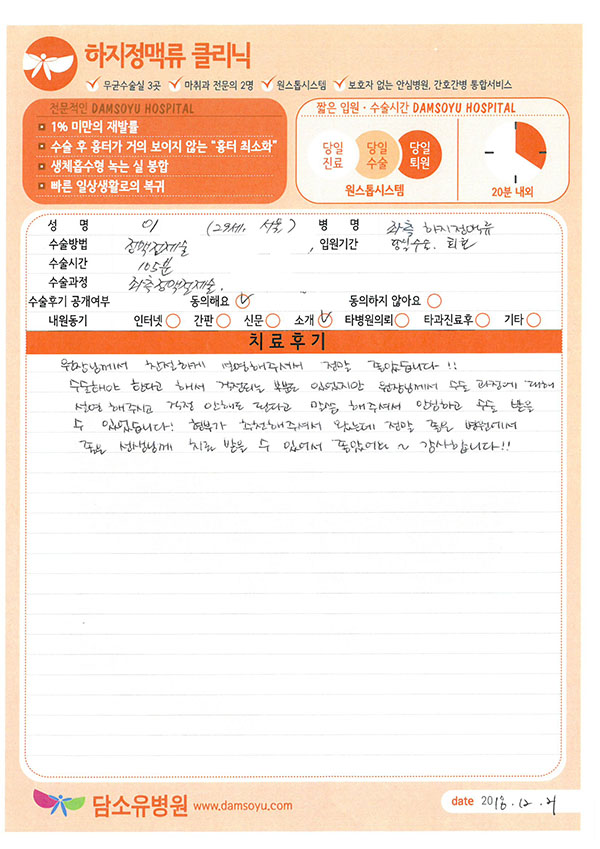 하지정맥류 클리닉
무균수술실 3곳 마취과 전문의 2명 원스톱시스템 보호자 없는 안심병원, 간호간병 통합서비스
전문적인 DAMSOYU HOSPITAL
1% 미만의 재발률
수술 후 흉터가 거의 보이지 않는 "흉터 최소화"
생체흡수형 녹는 실 봉합
빠른 일상생활로의 복귀
짧은 입원·수술시간 DAMSOYU HOSPITAL
당일 진료 당일 수술 당일 퇴원
원스톱시스템
20분 내외
성 명 이 (29세, 서울) 병 명 좌측 하지정맥류
수술방법 정맥절제술 , 입원기간 당일수술, 퇴원
수술시간 105분
수술과정 좌측정맥절제술.
수술후기 공개여부 동의해요 동의하지 않아요
내원동기 인터넷 간판 신문 소개 타병원의뢰 타과진료후 기타
치료후기
원장님께서 친절하게 설명해주셔서 정말 좋았습니다!!
수술해야 한다고 해서 걱정되는 부분도 있었지만 원장님께서 수술 과정에 대해
설명 해주시고 걱정 안해도 된다고 말씀 해주셔서 안심하고 수술 받을
수 있었습니다! 형부가 추천해주셔서 왔는데 정말 좋은 병원에서
좋은 선생님께 치료 받을 수 있어서 좋았어요~ 감사합니다!!
담소유병원 www.damsoyu.com
date 2018.12.21